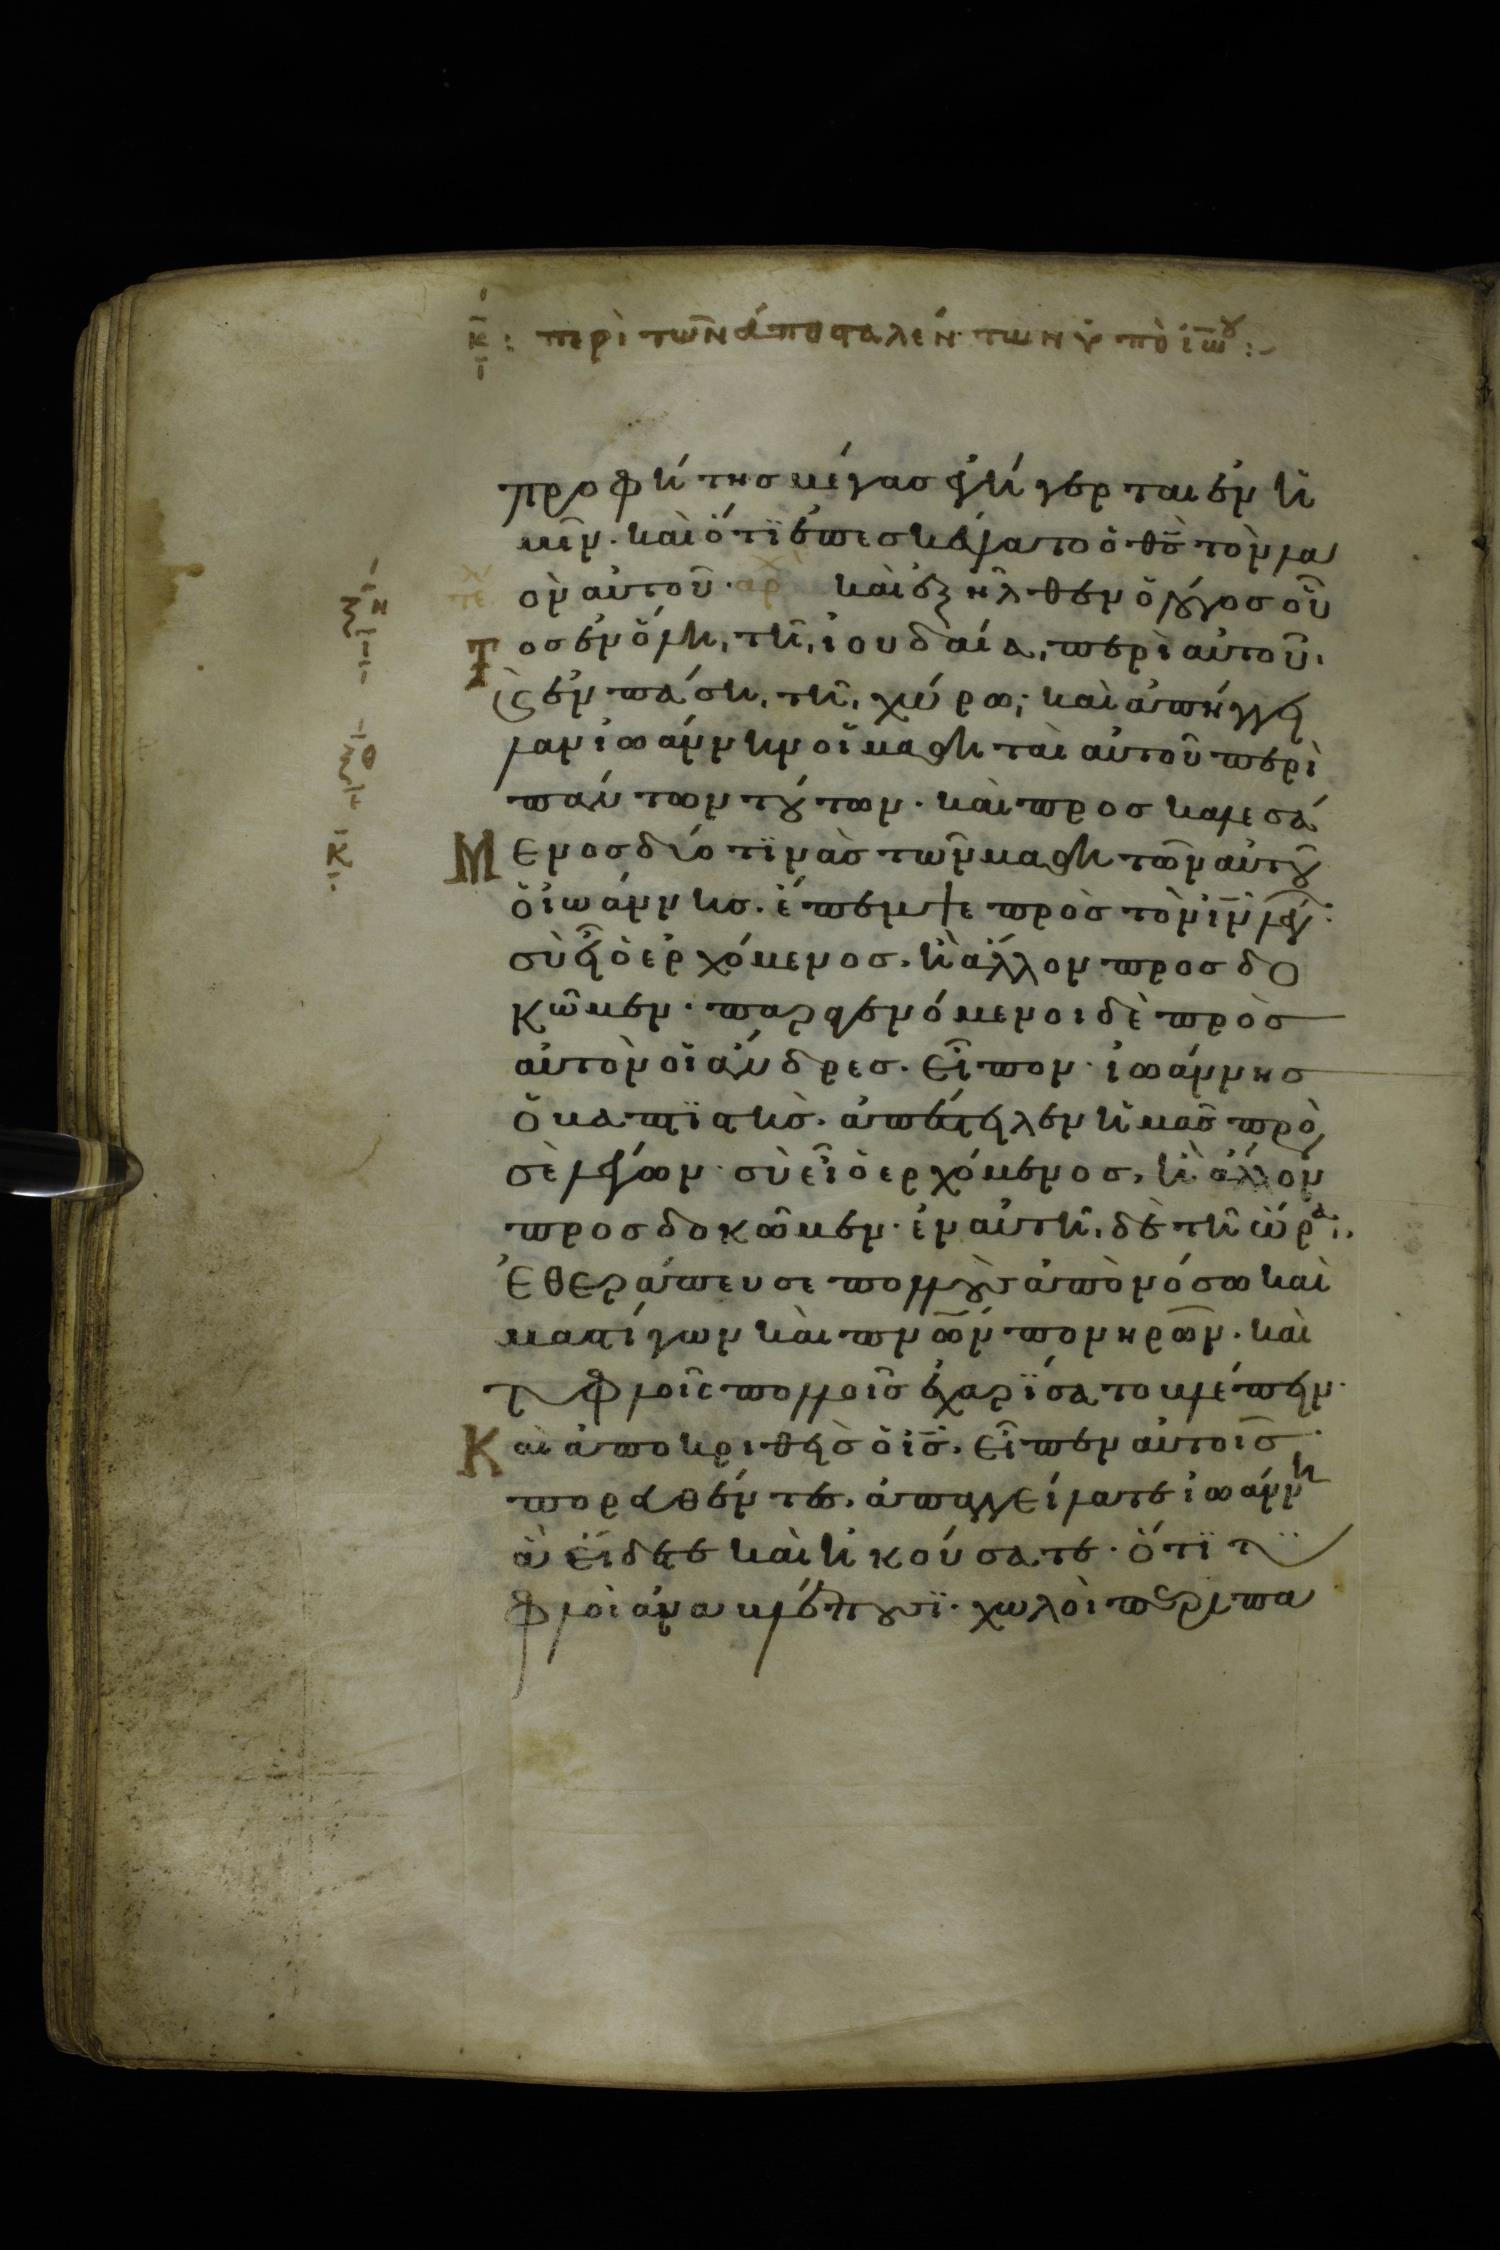 κ: περὶ τῶν ἀποσταλέντων ὑπὸ ἰω̅ου:
προφήτησ μέγασ ἐγήγερται ἐν ἡ
μῖν· καὶ ὅτϊ ἐπεσκέψατο ὁ θ̅σ̅ τὸν λα
ὸν αὐτοῦ· ἀρχ καὶ ἐξῆλθεν ὁ λόγοσ οὗ
τοσ ἐν ὅλη, τῆ, ἰουδαία, περὶ αὐτοῦ.
ξ̅η̅
ι̅
Ϛ ἐν πάση, τῆ, χώρω; καὶ ἀπήγγει
λαν ἰωάννην οἱ μαθηταὶ αὐτοῦ περὶ
ξ̅θ̅
πάντων τούτων· καὶ προσκαλεσά
κ̅
μενοσ δύο τϊνὰσ τῶν μαθητῶν αὐτοῦ
ὁ ἰωάννησ. ἔπεμψε πρὸσ τὸν ι̅ν̅ λέγων:
σὺ εἶ ὁ ἐρχόμενοσ. ἢ ἄλλον προσδο
κῶμεν· παραγενόμενοι δὲ πρὸσ
αὐτὸν οἱ ἄνδρεσ. εἶπον· ἰωάννησ
ὁ βαπτϊστὴσ. ἀπέστειλεν ἡμᾶσ πρὸσ
σὲ λέγων· σὺ εἶ ὁ ἐρχόμενοσ, ἢ ἄλλον
προσδοκῶμεν· ἐν αὐτῆ, δὲ τῆ ὥρα.
ἐθεράπευσε πολλοὺσ ἀπὸ νόσω καὶ
μαστίγων καὶ πνω̅ν πονηρῶν. καὶ
τυφλοῖς πολλοῖσ ἐχαρϊσατο βλέπειν·
Καὶ ἀποκριθεὶσ ὁ ι̅σ̅. εἶπεν αὐτοῖσ·
πορευθέντεσ. ἀπαγγείλατε ἰωάννη
ἃ εἴδετε καὶ ἠκούσατε· ὅτϊ τυ
φλοὶ ἀναβλέπουσϊ· χωλοὶ περιπα